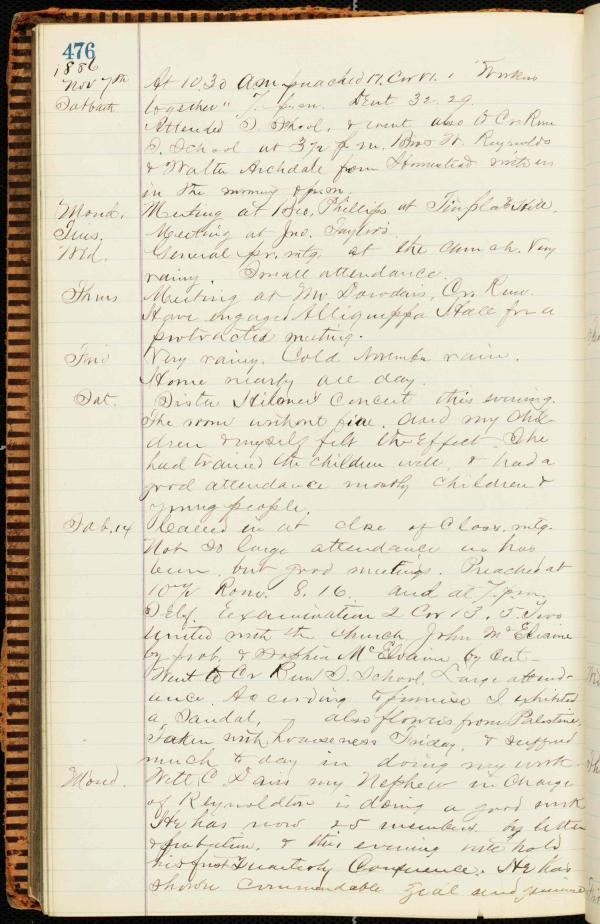 476
1886
Nov 7th At 10.30 Am preached 1, Cor VI. 1 "Workers
Sabbath together" 7. p.m. Deut 32. 29.
Attended S. School, & went also to Cr Run
S. School at 3½ p.m. Bros W. Reynolds
& Walter Archdale from Homestead with us
in the morning & p.m.
Mond. Meeting at Bro. Phillips at Tinplate Hill.
Tues. Meeting at Jno. Taylor's.
Wed. General pr. mtg. at the church. Very
rainy. Small attendance.
Thurs Meeting at Mr Cr. Run.
Have engaged Alliquippa Hall for a
protracted meeting.
Frid Very rainy. Cold November rain.
Home nearly all day.
Sat. Sister Concert this evening.
The room without fire, and my chil-
dren & myself felt the effect. She
had trained the children well, & had a
good attendance mostly children &
young people.
Sab. 14 Called in at close of Class. mtg.
Not so large attendance as has
been, but good meetings. Preached at
10½ Rom. 8. 16. and at 7. p.m.
Self. Examination 2 Cor 13. 5. Two
united with the church John McElvaine
by prob. & Sophia McElvaine by Cert-
Went to Cr Run S. School. Large attend-
ance. According to promise I exhibited
a Sandal, also flowers from Palestine.
Taken with hoarseness Friday, & suffered
much to day in doing my work
Mond. Will C. Davis my Nephew in charge
of Reynoldton is doing a good work
He has now 25 members by letter
& probation. & this evening will hold
his first Quarterly Conference. He has
shown commendable zeal and